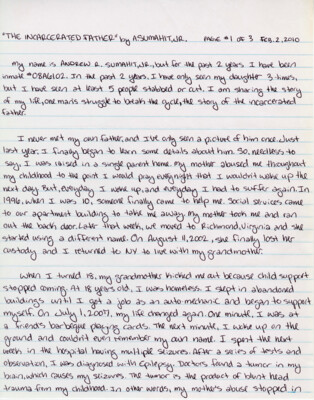 "THE INCARCERATED FATHER" by ASUMAHIT, JR. PAGE #1 OF 3 FEB. 2, 2010
my name is ANDREW R. SUMAHIT, JR., but for the past 2 years I have been
inmate #08A6102. In the past 2 years, I have only seen my daughter 3 times,
but I have seen at least 5 people stabbed or cut. I am sharing the story
of my life, one man's struggle to break the cycle, the story of the incarcerated
father.
I never met my own father, and I've only seen a picture of him once. Just
last year, I finally began to learn some details about him. So, needless to
say, I was raised in a single parent home. My mother abused me throughout
my childhood to the point I would pray every night that I wouldn't wake up the
next day. But, everyday I woke up, and everyday I had to suffer again. In
1996, when I was 10, someone finally came to help me. Social services came
to our apartment building to take me away. My mother took me and ran
out the back door. Later that week, we moved to Richmond, Virginia and she
started using a different name. On August 9, 2002, she finally lost her
custody and I returned to NY to live with my grandmother.
When I turned 18, my grandmother kicked me out because child support
stopped coming. At 18 years old, I was homeless. I slept in abandoned
buildings until I got a job as an auto mechanic and began to support
myself. On July 1, 2007, my life changed again. One minute, I was at
a friend's barbeque playing cards. The next minute, I woke up on the
ground and couldn't even remember my own name. I spent the next
week in the hospital having multiple seizures. After a series of tests and
observation, I was diagnosed with Epilepsy. Doctors found a tumor in my
brain, which causes my seizures. The tumor is the product of blunt head
trauma from my childhood. In other words, my mother's abuse stopped in